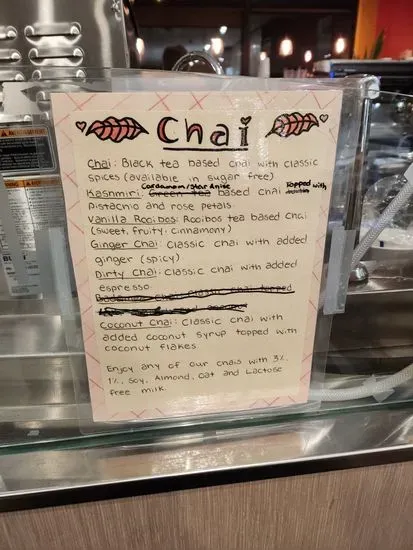 Chai
Chai: Black tea based chai with classic
spices (available in sugar free)
Cardamom/Star Anise Topped with
Kashmiri: Green tea based chai
Pistachio and rose petals.
Vanilla Rooibos: Rooibos tea based chai
(sweet, fruity, cinnamony)
Ginger Chai: classic chai with added
ginger (spicy)
Dirty Chai: classic chai with added
espresso
Coconut Chai: Classic chai with
added coconut syrup topped with
coconut flakes.
Enjoy any of our chais with 3%,
1%, Soy, Almond, oat and Lactose
free milk.